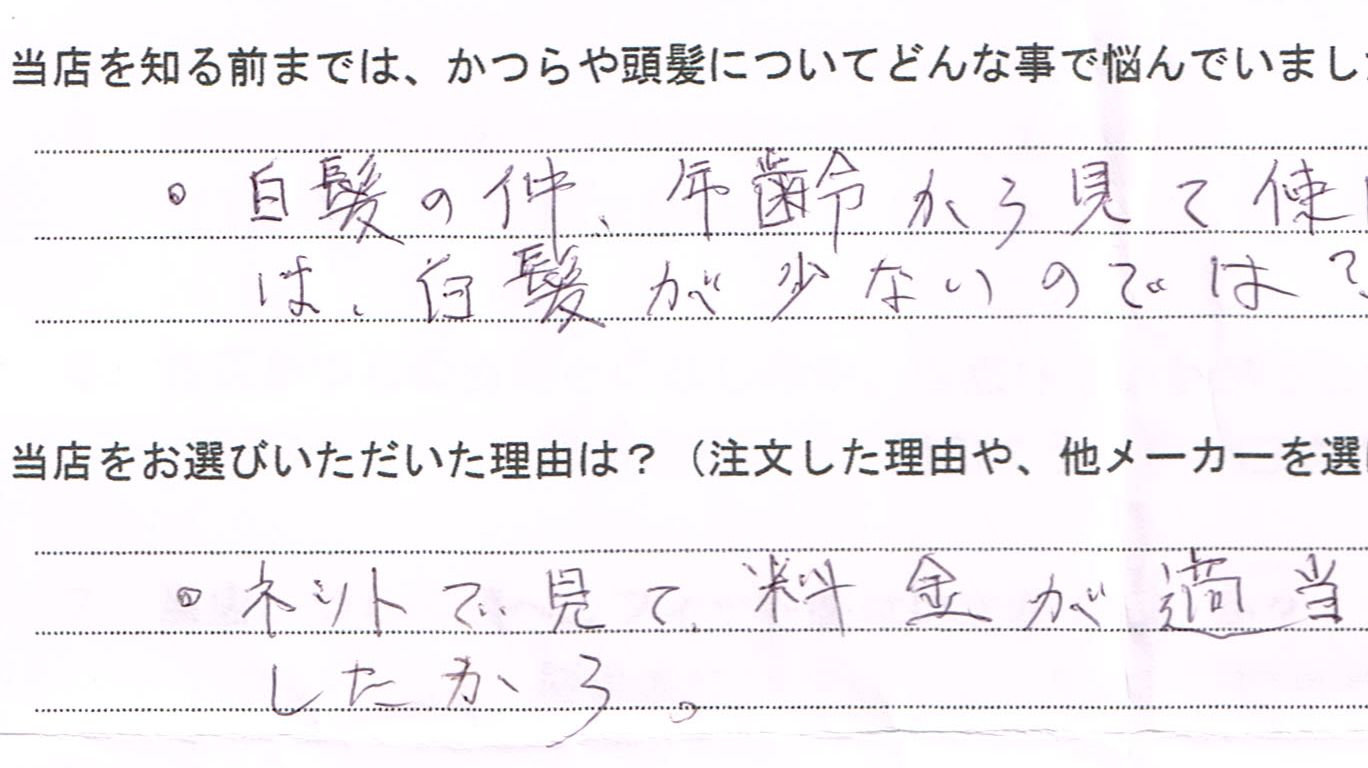 当店を知る前までは、かつらや頭髪についてどんな事で悩んでいまし
。白髪の件、年齢から見て使
は、白髪が少ないのでは?
当店をお選びいただいた理由は?(注文した理由や、他メーカーを選
。ネットで見て、料金が適当
したから。